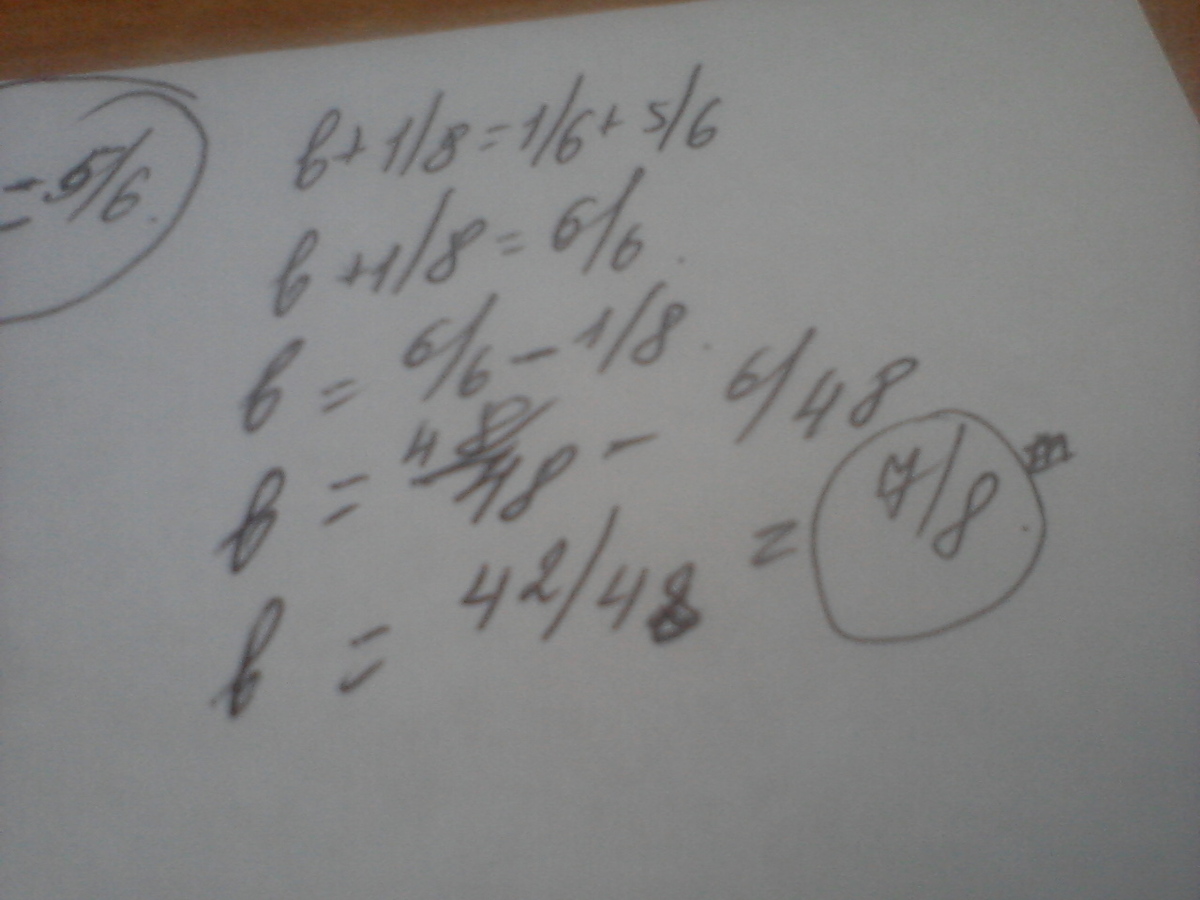 = 5/6.
b + 1/8 = 1/6 + 5/6
b + 1/8 = 6/6.
b = 6/6 - 1/8.
b = 48/48 - 6/48
b = 42/48 = 7/8.